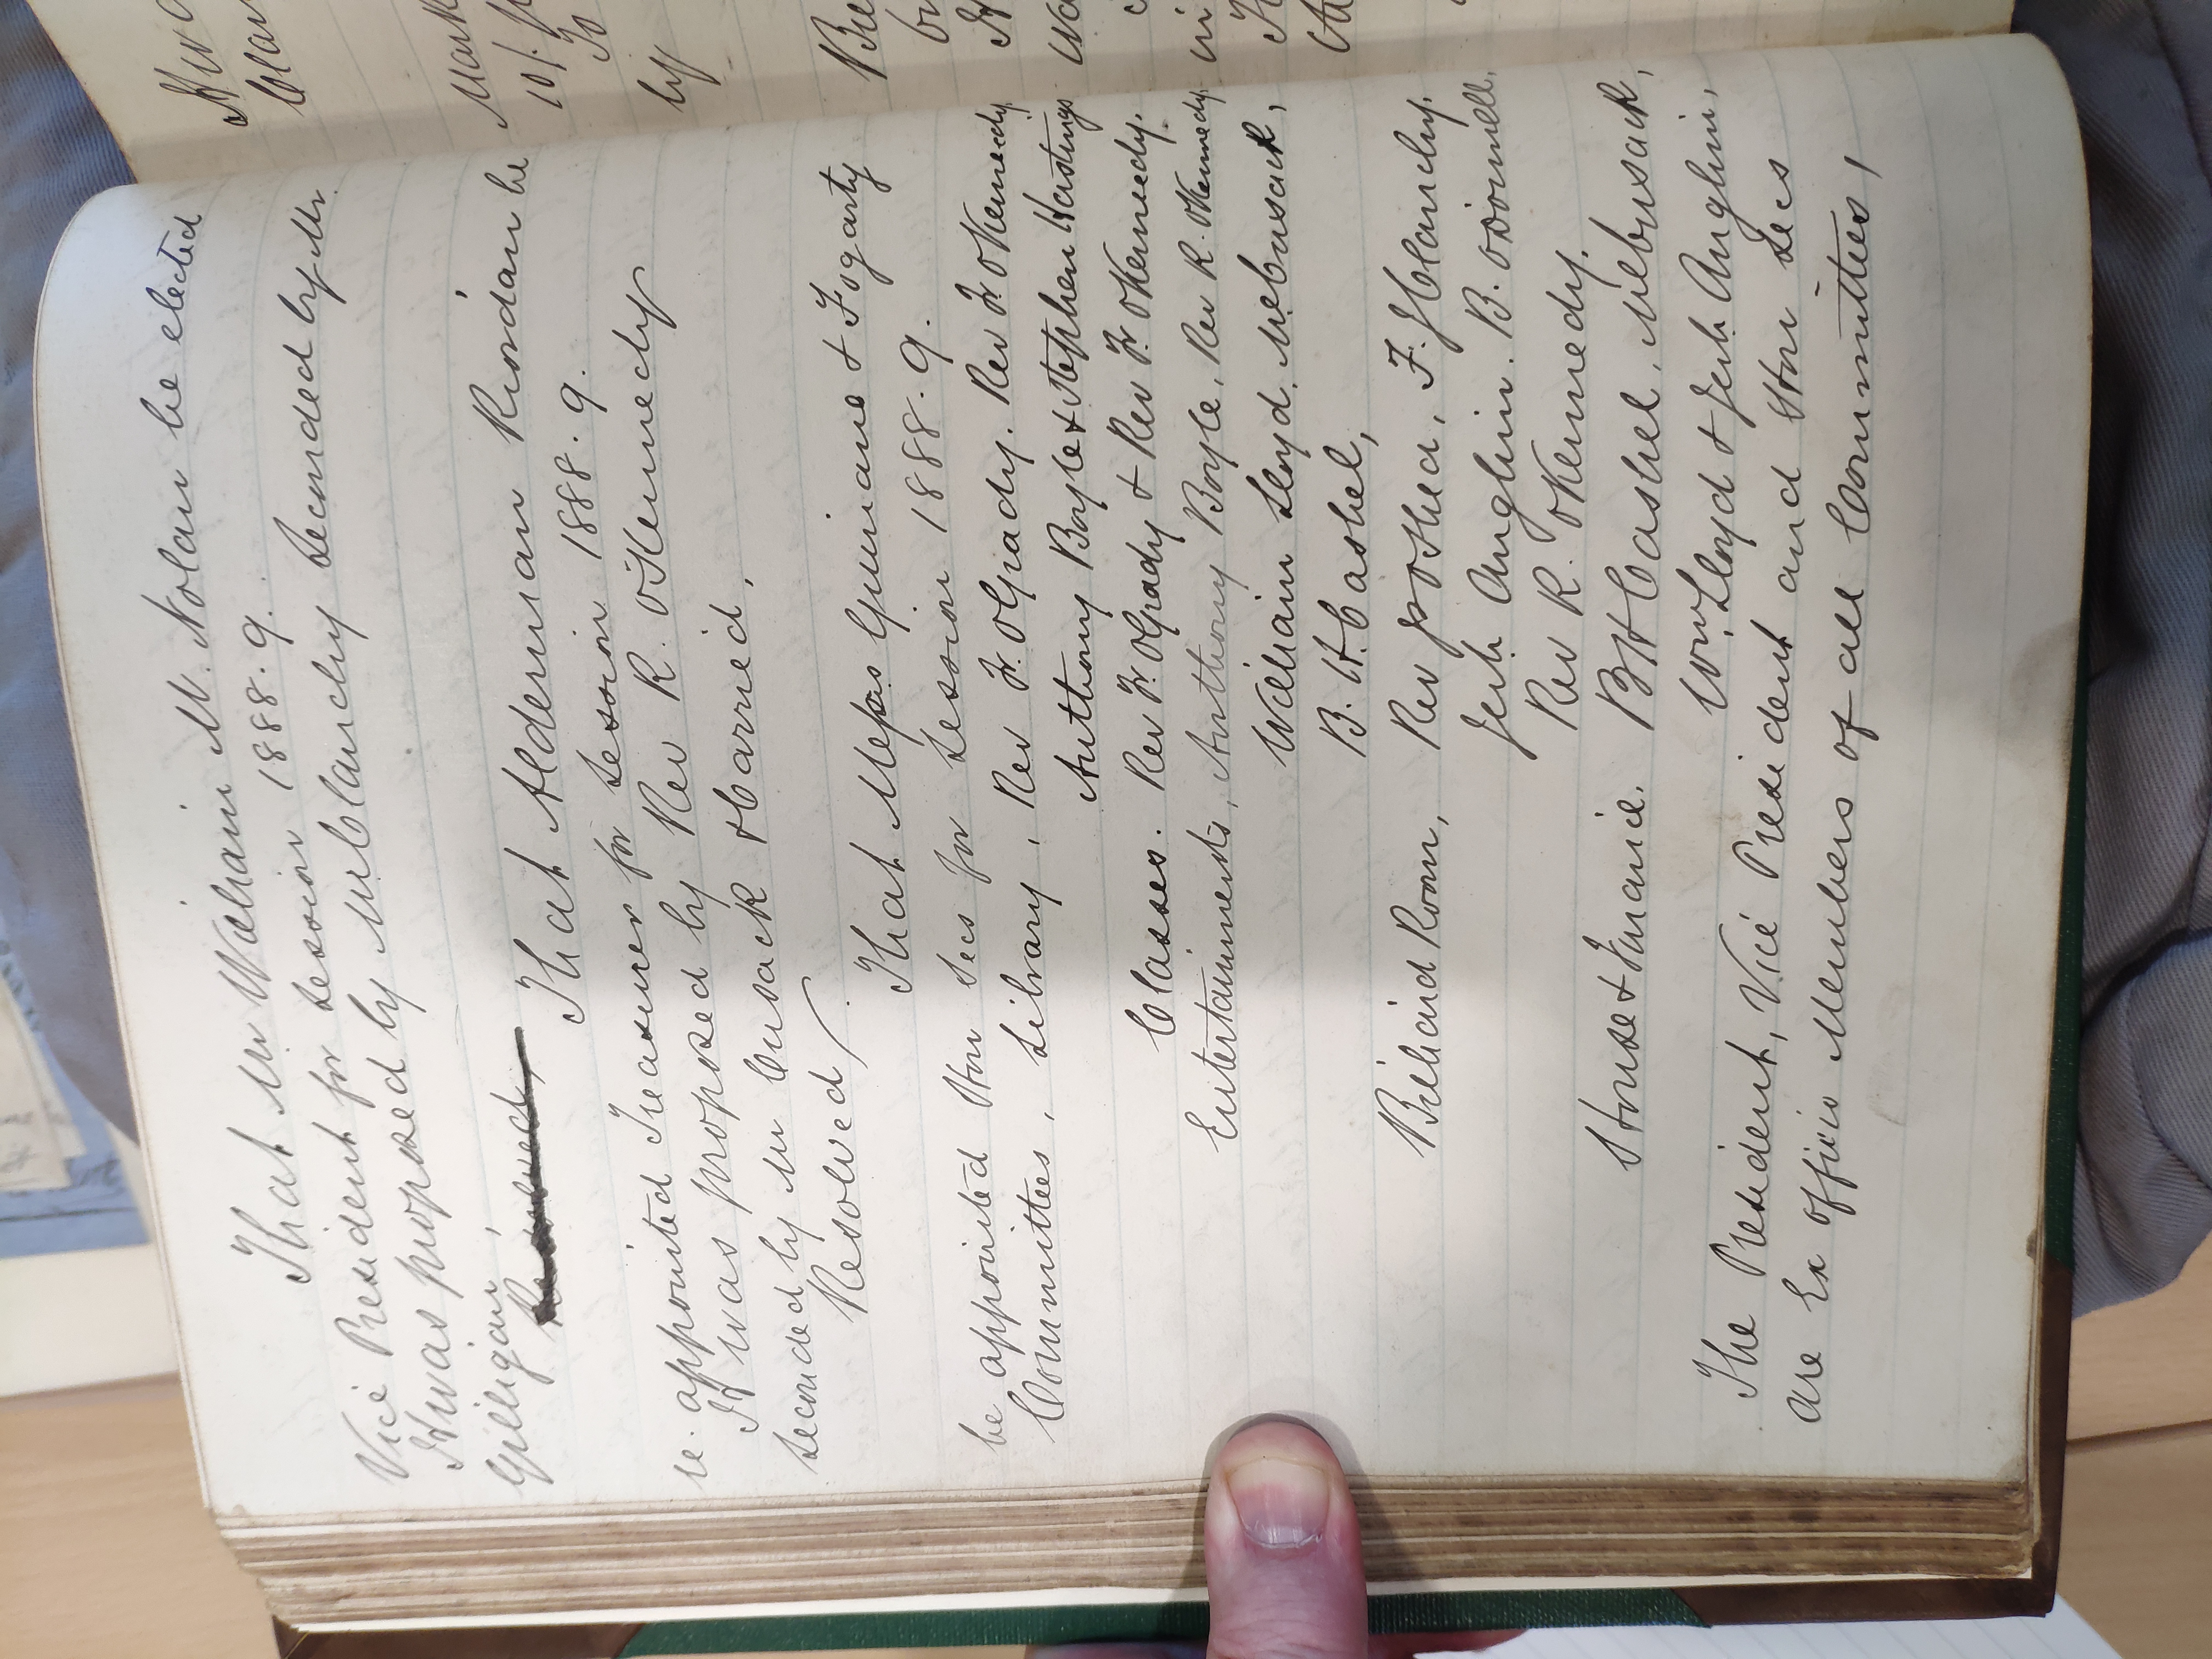 That Mr William M. Nolan be elected
Vice President for Session 1888.9.
It was proposed by Mr Clanchy Seconded by Mr
Gilligan
That Alderman Riordan be
re. appointed Treasurer for Session 1888.9.
It was proposed by Rev R. O'Kennedy
Seconded by Mr Cusack & Carried,
Resolved
That Messrs Guinane & Fogarty
be appointed Hon Secs for Session 1888.9.
Committees, Library, Rev Fr. OGrady. Rev Fr OKennedy,
Anthony Boyle & Stephen Hastings
Classes. Rev Fr. OGrady & Rev Fr. OKennedy.
Entertainments, Anthony Boyle, Rev R. OKennedy
William Lloyd. M. Cusack,
B. H. Cashel,
Billiard Room, Rev J OShea, F. J Clanchy.
Jerh. Anglin. B. ODonnell,
Rev R. OKennedy.
House & Finance. B H Cashel, M Cusack,
Wm Lloyd & Jerh Anglin,
The President, Vice President and Hon Secs
are Ex officio Members of all Committees,
Mark
10/.
To
by